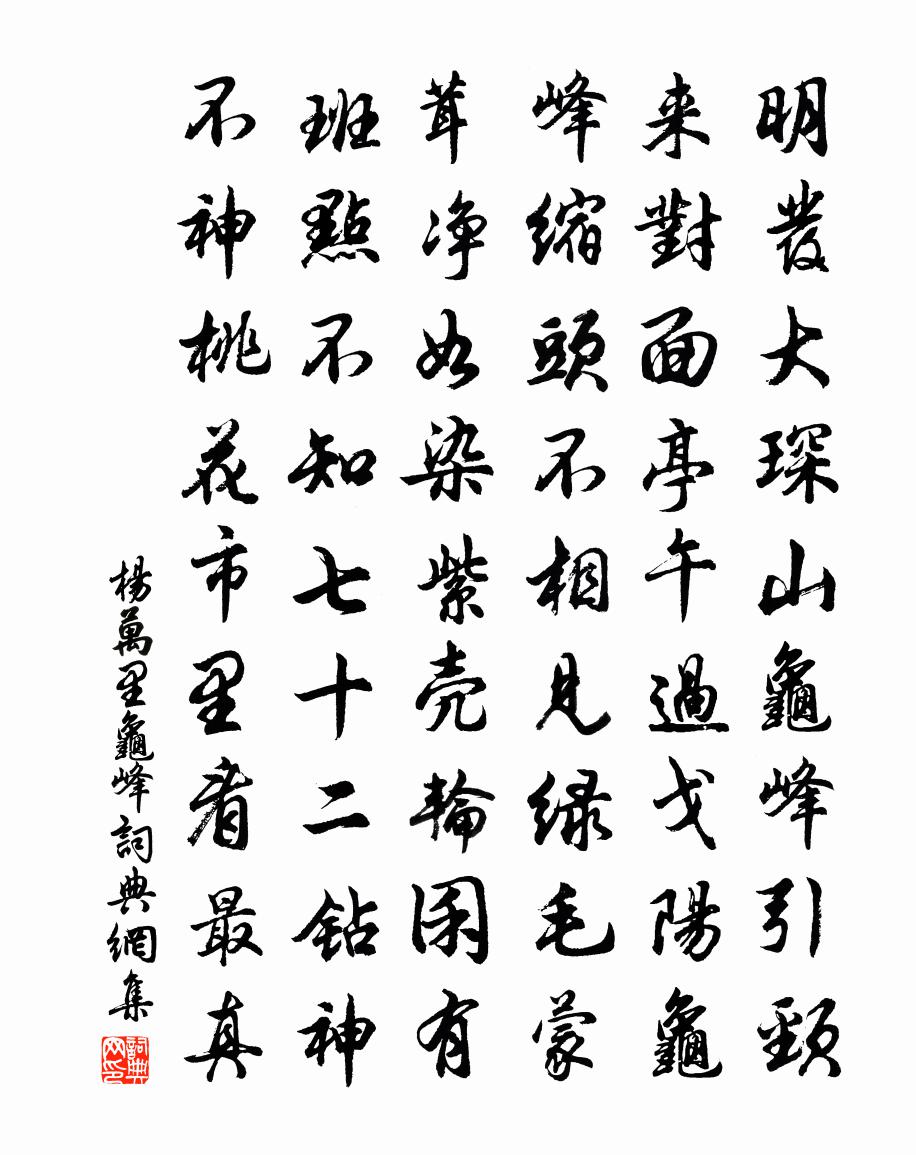 明發大琛山龜峰引頸
来對面亭午過戈陽龜
峰缩頭不相見緑毛蒙
茸净如染紫壳輪囷有
班點不知七十二鈷神
不神桃花市里看最真
楊萬里龜峰詞典網集
詞典网印